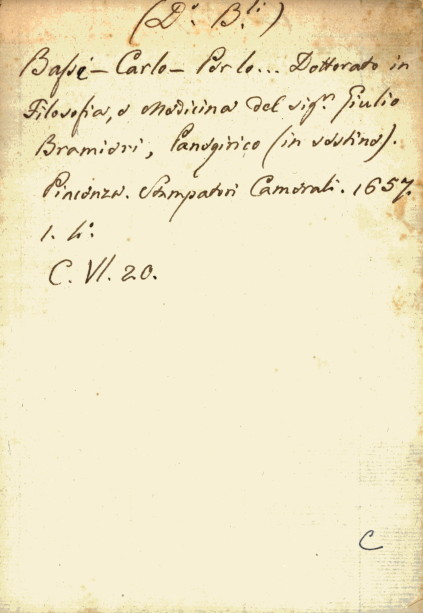 (D.º B.li)
Bassi - Carlo - Per lo... Dottorato in
Filosofia, e Medicina del sigr. Giulio
Bramieri, Panegirico (in sestine).
Piacenza. Stampatori Camerali. 1657.
1. 4.º
C. VI. 20.
C